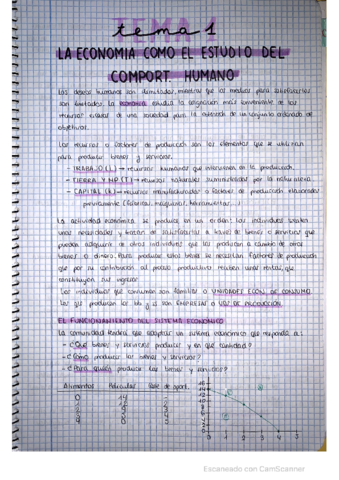 tema 1
LA ECONOMIA COMO EL ESTUDIO DEL
COMPORT. HUMANO
Los deseos humanos son ilimitados, mientras que los medios para satisfacerlos
son limitados. La economía estudia la asignación más conveniente de los
recursos escasos de una sociedad para la obtención de un conjunto ordenado de
objetivos.
Los recursos o factores de producción son los elementos que se utilizan
para producir bienes y servicios.
- TRABAJO (L) → recursos humanos que intervienen en la producción.
- TIERRA Y MP (T) → recursos naturales suministrados por la naturaleza
- CAPITAL (K) → recursos manufacturados o factores de producción elaborados
previamente (fábricas, máquinas, herramientas...)
La actividad económica se produce en un orden: los individuos sienten
unas necesidades y tratan de satisfacerlas a través de bienes o servicios que
pueden adquirir de otros individuos que los producen a cambio de otros
bienes o dinero. Para producir estos bienes se necesitan factores de producción
que por su contribución al proceso productivo reciben unas rentas, que
constituyen sus ingresos.
Los individuos que consumen son familias o UNIDADES ECON. DE CONSUMO.
Los que producen los b/s son EMPRESAS o UDS DE PRODUCCIÓN.
EL FUNCIONAMIENTO DEL SISTEMA ECONÓMICO
La comunidad tendrá que adoptar un sistema económico que responda a:
- ¿Qué bienes y servicios producir y en qué cantidad?
- ¿Cómo producir los bienes y servicios?
- ¿Para quién producir los bienes y servicios?
Alimentos Películas
0 14
Escaneado con CamScanner